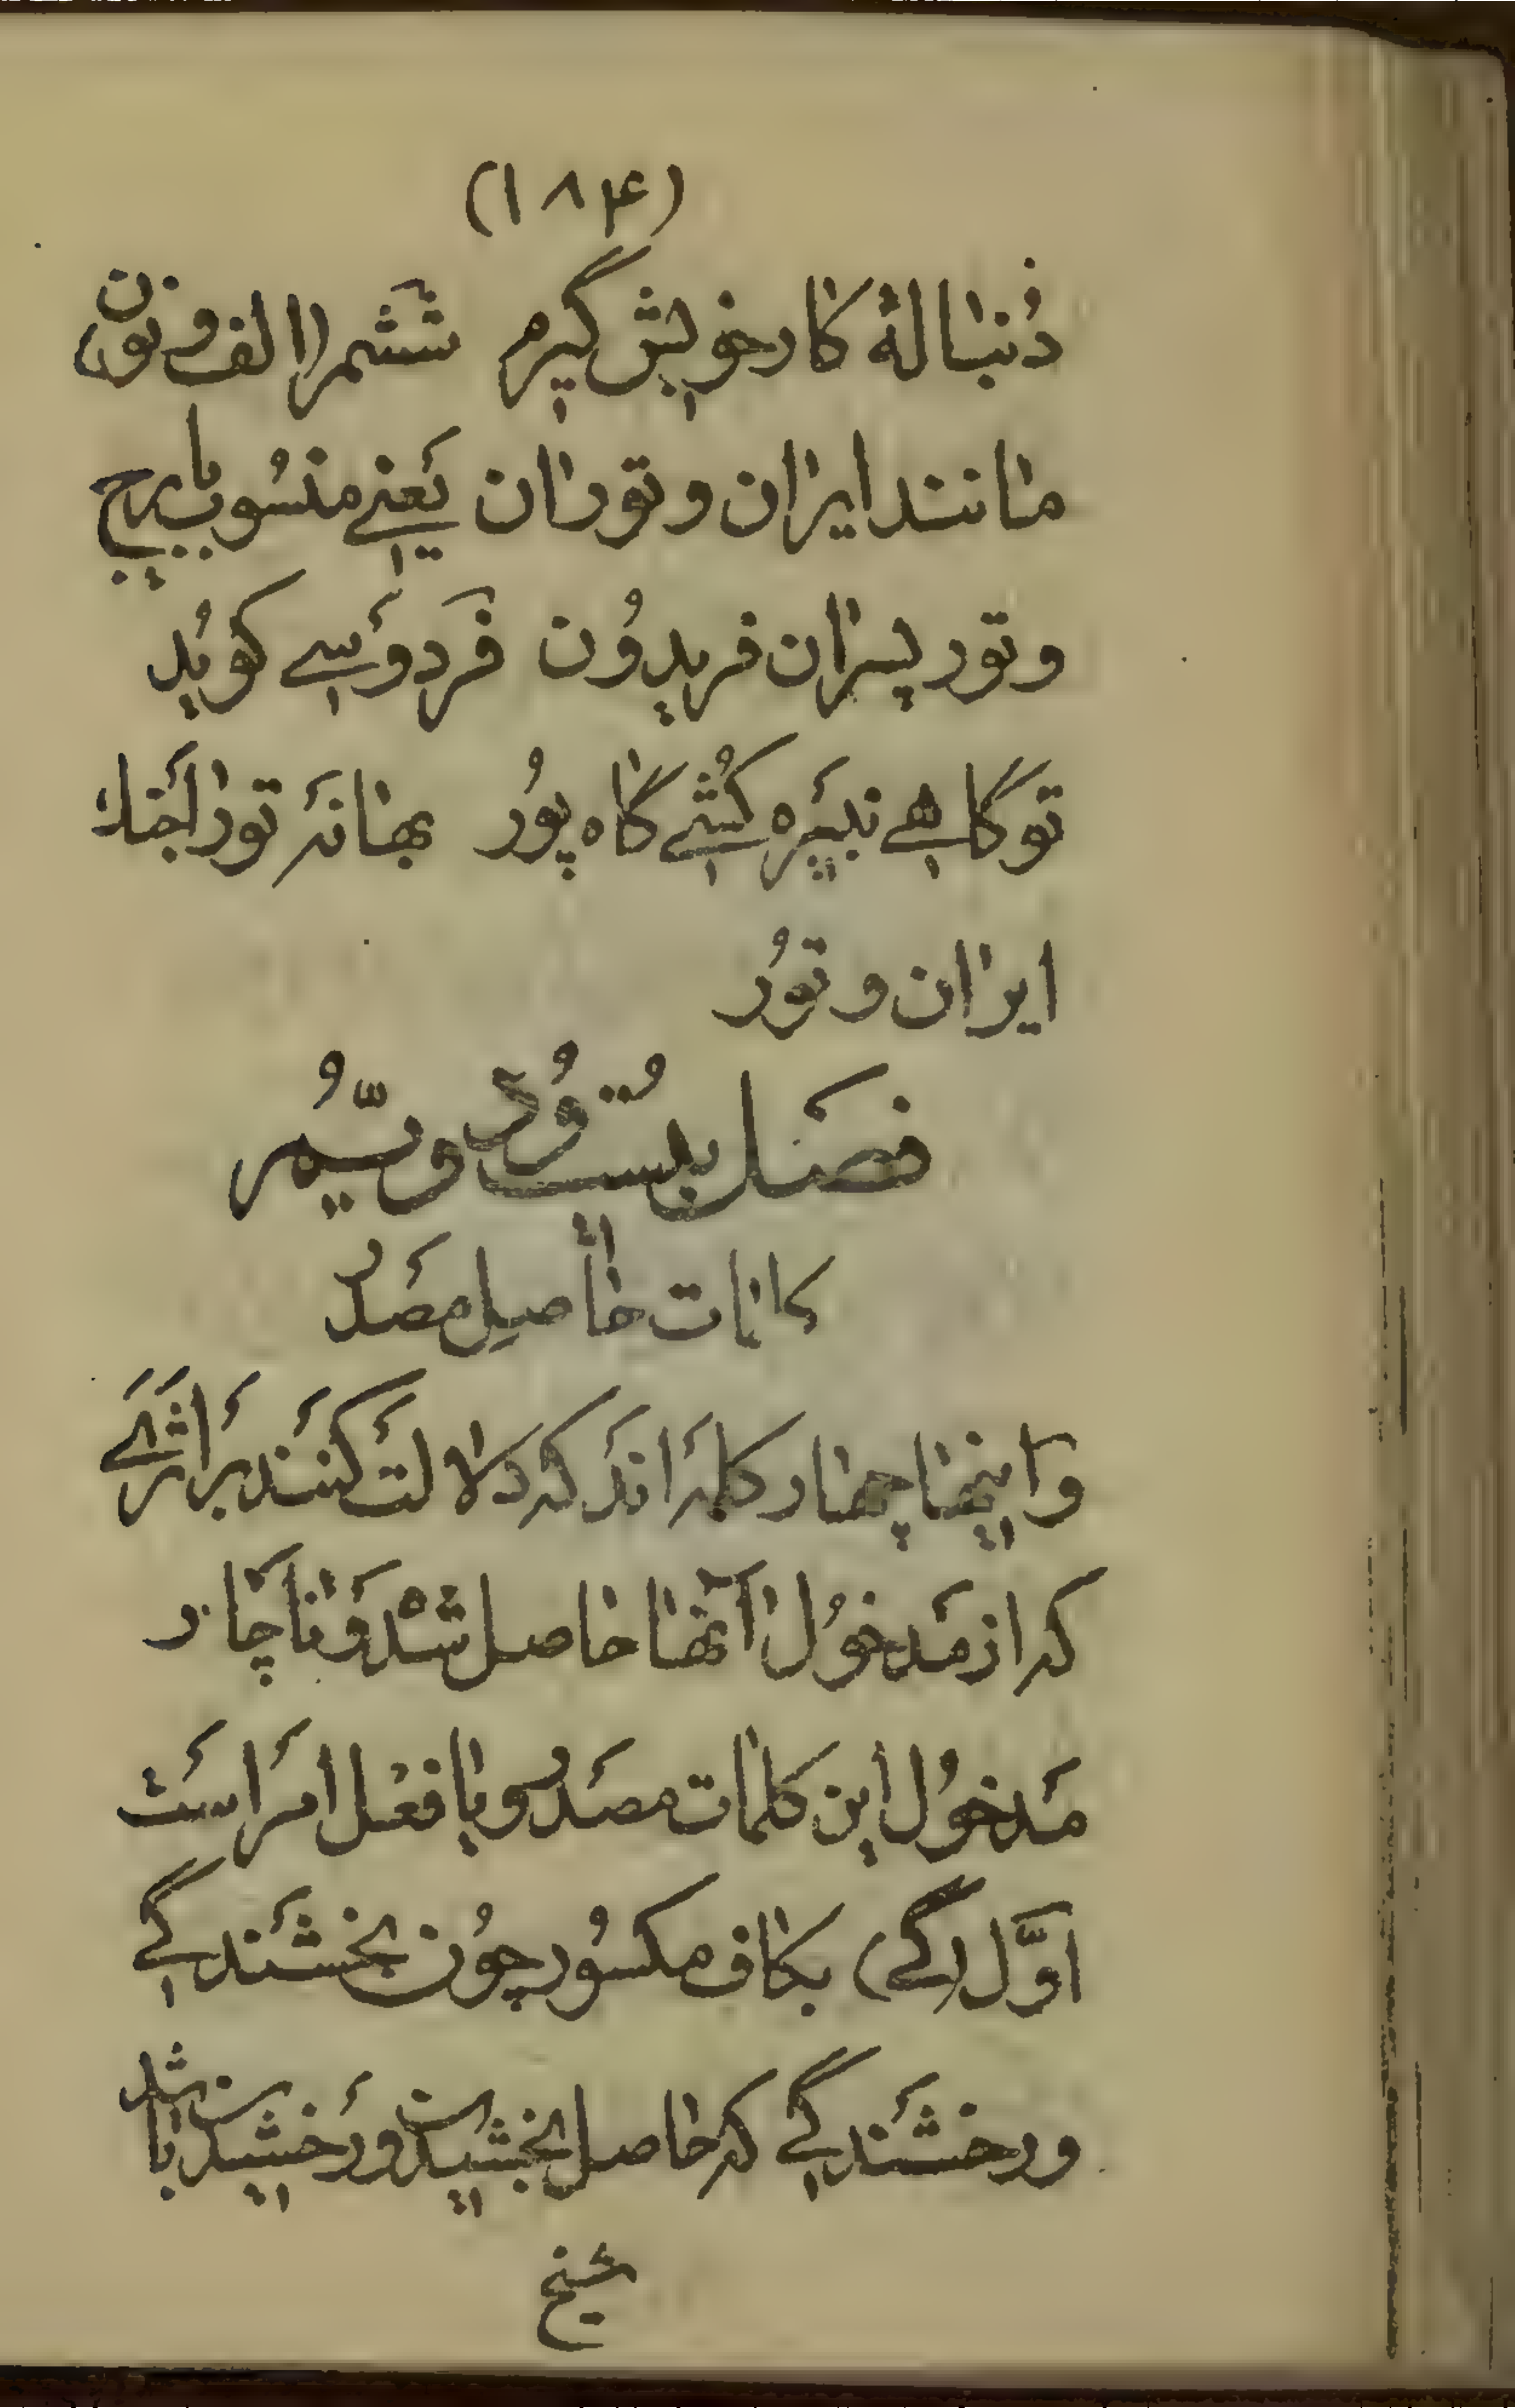 (۱۸۴)
دُنباله کار خویش گیرم ششم (الف و نون)
مانند ایران و توران یَعنے منسُوب بایرج
و تور پسران فریدُون فَردَوسے کوَید
تو گاهے نبیَره کُشے گاه پُور بهانَه تو را
ایران و توُر
فصَل بیستُ وُ سیّوُم
کلمات حاصِل مصَدر
و اینها چهار کلمَه اند که دَلالت کنَند بَر اَثَرَے
که از مَدخوُل آنها حاصل شُده و ناچار
مَدخوُل این کلمات مصَدر و یا فعْل امَر اسَت
اوَّل (گے) بکاف مکسُور چوُن بخشَندگے
و رخشَندگے که حاصل بخشیدن و رَخشیدن باشد
شیخ